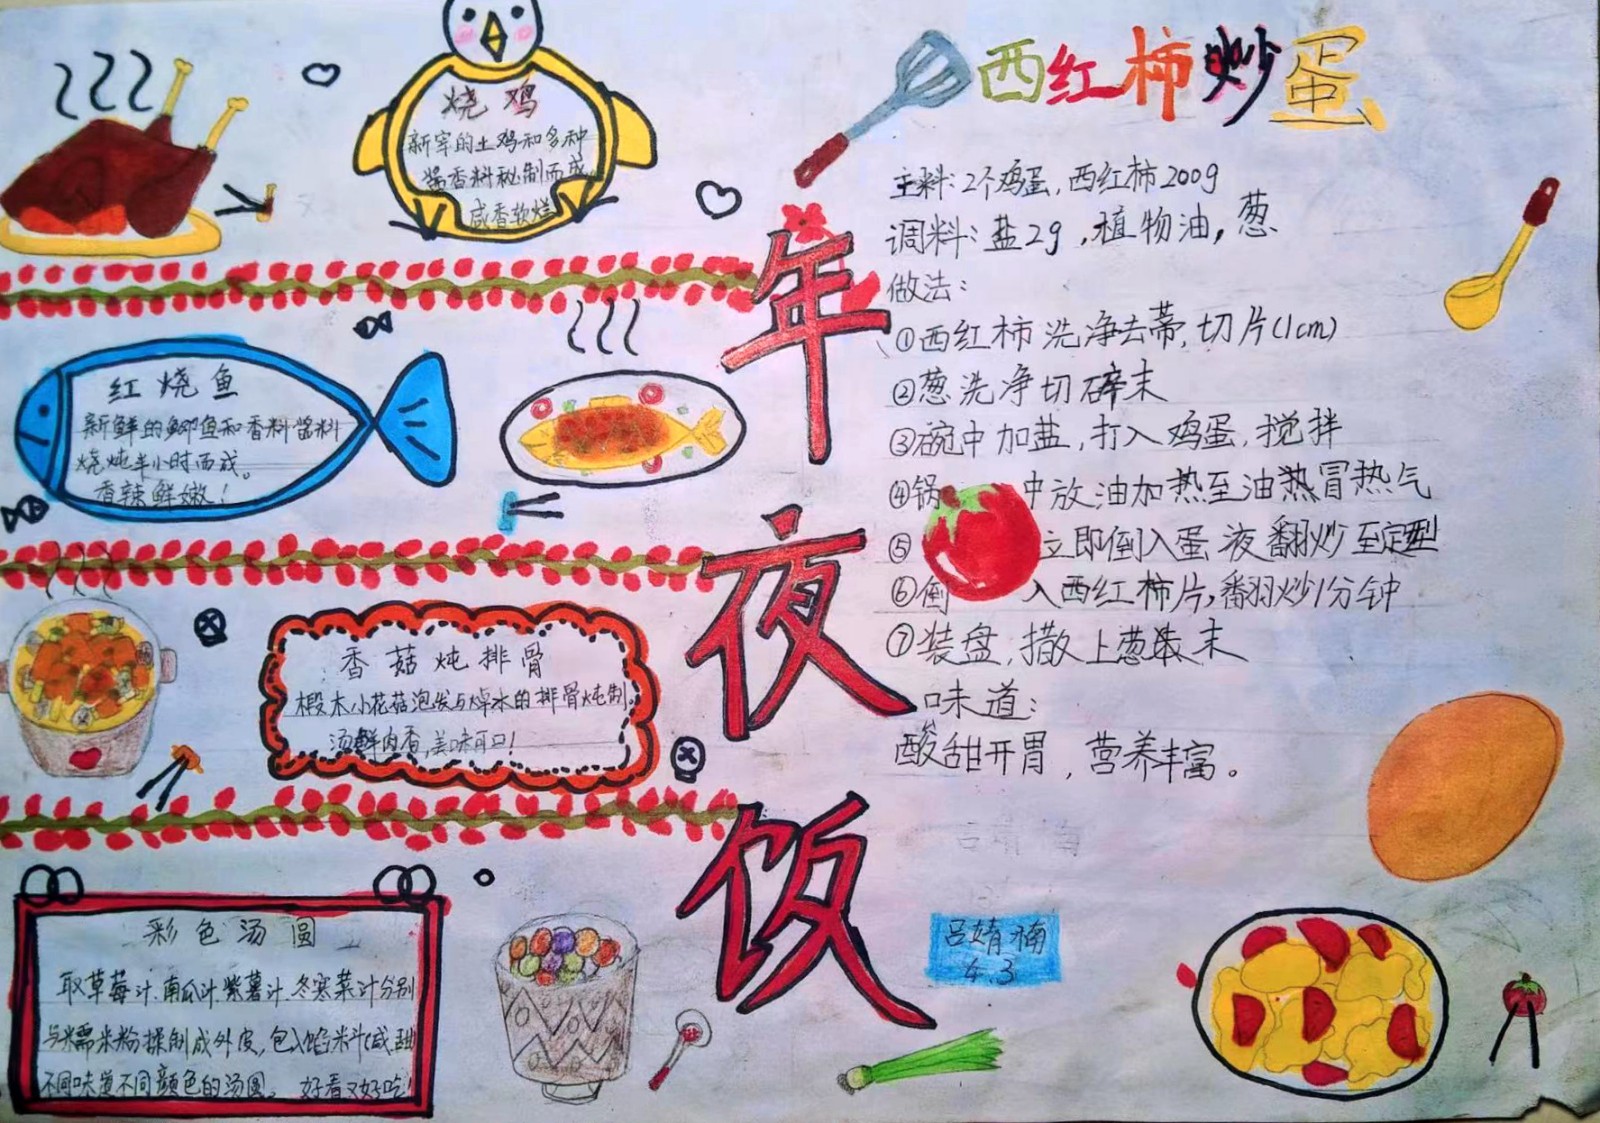 烧鸡
新宰的土鸡和多种
酱香料秘制而成
咸香软烂
红烧鱼
新鲜的鲫鱼和香料酱料
烧炖半小时而成。
香辣鲜嫩！
香菇炖排骨
椴木小花菇泡发与焯水的排骨炖制。
汤鲜肉香,美味可口！
彩色汤圆
取草莓汁.南瓜汁.紫薯汁.冬寒菜汁分别
与糯米粉揉制成外皮,包入馅料(咸.甜
不同味道不同颜色的汤圆。好看又好吃！
年夜饭
西红柿炒蛋
主料:2个鸡蛋,西红柿200g
调料:盐2g,植物油,葱
做法:
①西红柿洗净去蒂,切片(1cm)
②葱洗净切碎末
③碗中加盐,打入鸡蛋,搅拌
④锅中放油加热至油热冒热气
⑤立即倒入蛋液翻炒至定型
⑥倒入西红柿片,翻炒1分钟
⑦装盘,撒上葱末
味道:
酸甜开胃,营养丰富。
吕婧楠
4.3